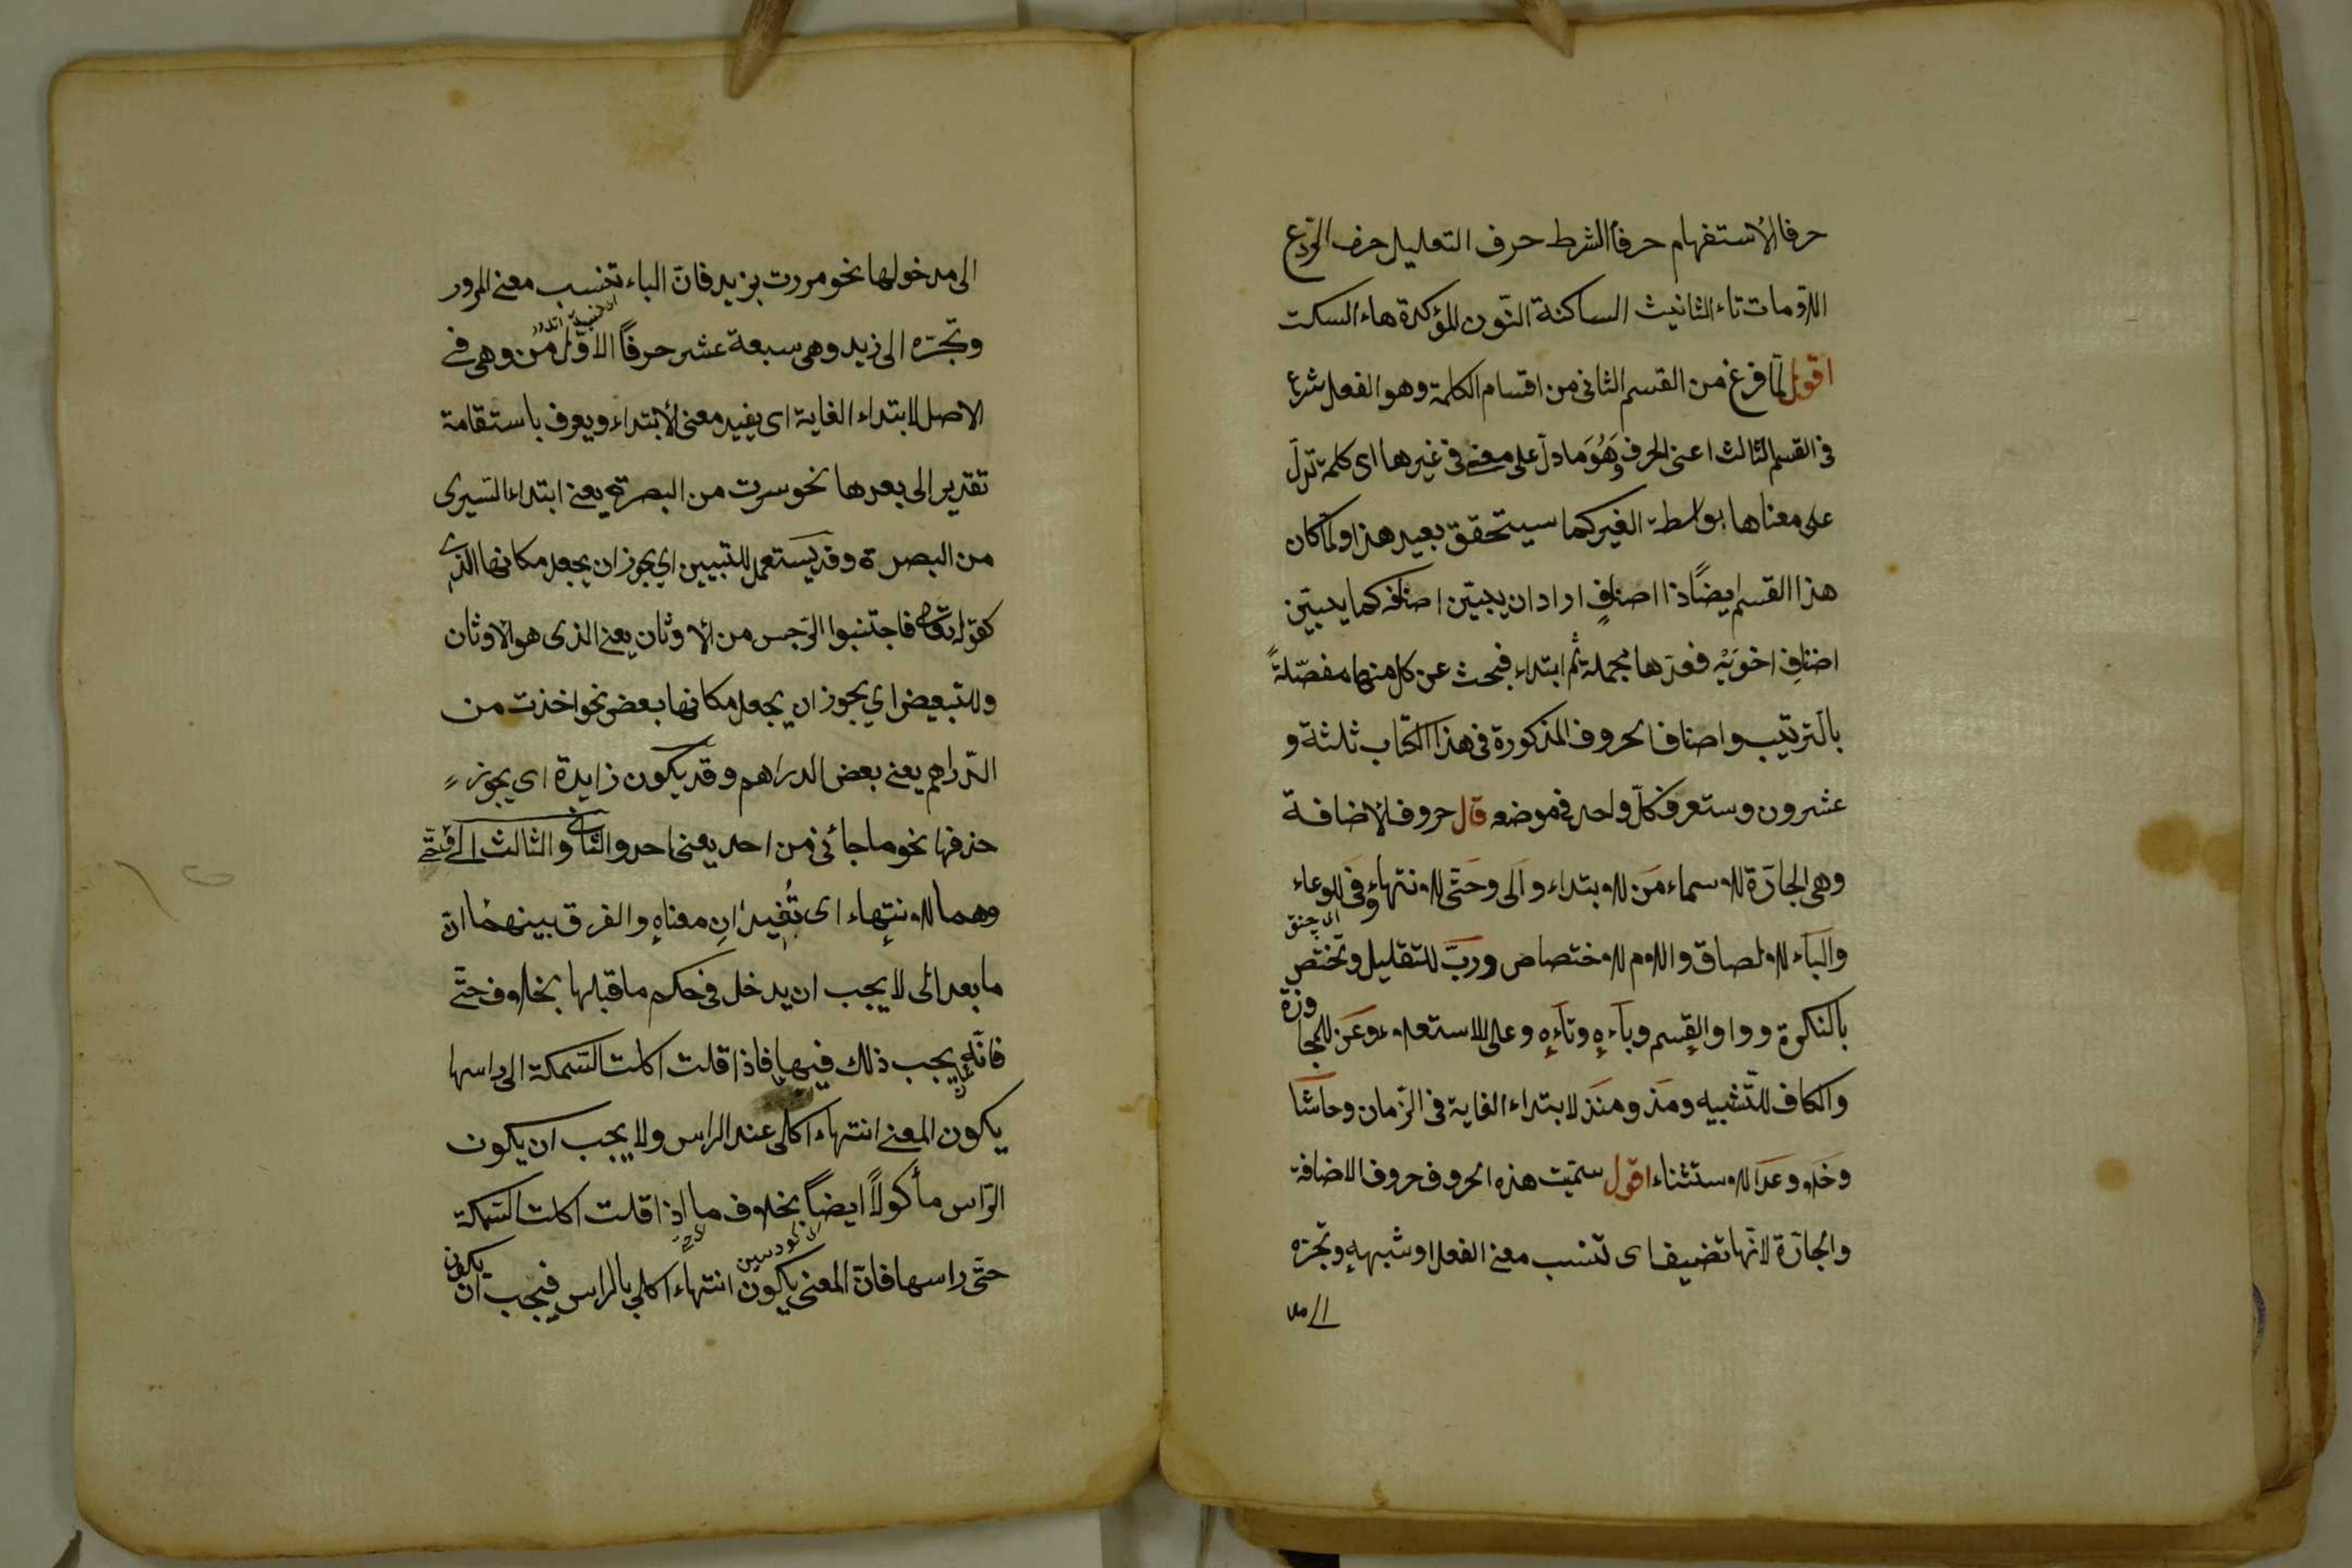 حرفا الاستفهام حرفا الشرط حرف التعليل حرف الردع
اللامات تاء التانيث الساكنة النون المؤكدة هاء السكت
اقول لما فرغ من القسم الثانى من اقسام الكلمة وهو الفعل شرع
فى القسم الثالث اعنى الحرف وَهُوَ ما دلّ على معنى فى غيرها اى كلمة تدلّ
على معناها بواسطة الغير كما سيتحقق بعيد هذا ولمّا كان
هذا القسم ايضًا ذا اصنافٍ اراد ان يبيّن اصنافه كما يبيّن
اصناف اخوَيْهِ فعدّها مجملة ثم ابتداء فبحث عن كل منهما مفصّلةً
بالترتيب واصناف الحروف المذكورة فى هذا الكتاب ثلثة و
عشرون وستعرف كلّ واحد فى موضعه قال حروف الاضافة
وهى الجارّة للاسماء مَن للابتداء والى وحَتّى للانتهاء وفى للوعاء
والباء للالصاق واللام للاختصاص وربّ للتقليل وتختص
بالنكرة وواو القسم وباءه وتاءه وعلى للاستعلاء وعَن للمجاوزة
والكاف للتّشبيه ومذ ومنذ لابتداء الغاية فى الزمان وحاشا
وخلا وعَدا للاستثناء اقول سمّيت هذه الحروف حروف الاضافة
والجارّة لانها تضيف اى تنسب معنى الفعل او شبهه وتجرّه
الى مدخولها نحو مررت بزيد فانّ الباء تنسب معنى المرور
وتجرّه الى زيد وهى سبعة عشر حرفًا الاوّل من وهى فى
الاصل لابتداء الغاية اى يفيد معنى الابتداء ويعرف باستقامة
تقدير الى بعدها نحو سرت من البصرة يعنى ابتداء السّيرى
من البصرة وقد يستعمل للتبيين اي يجوز ان يجعل مكانها الذى
كقوله تعالى فاجتنبوا الرّجس من الاوثان يعنى الذى هو الاوثان
وللتبعيض اي يجوز ان يجعل مكانها بعض نحو اخذت من
الدّراهم يعنى بعض الدراهم وقد يكون زايدة اى يجوز
حذفها نحو ما جائنى من احد يعنى احد والثانى والثالث الى وحتّى
وهما للانتهاء اى تُفيدان معناه والفرق بينهما انّ
ما بعد الى لا يجب ان يدخل فى حكم ما قبلها بخلاف حتّى
فانّه يجب ذلك فيها فاذا قلت اكلت السّمكة الى راسها
يكون المعنى انتهاء اكلى عند الراس ولا يجب ان يكون
الرّاس مأكولاً ايضًا بخلاف ما اذا قلت اكلت السّمكة
حتّى راسها فانّ المعنى يكون انتهاء اكلي بالراس فيجب ان يكون